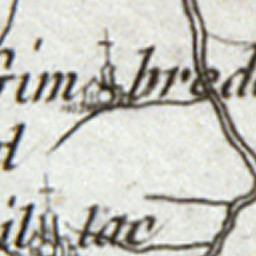 Gimbrede
d
il lac